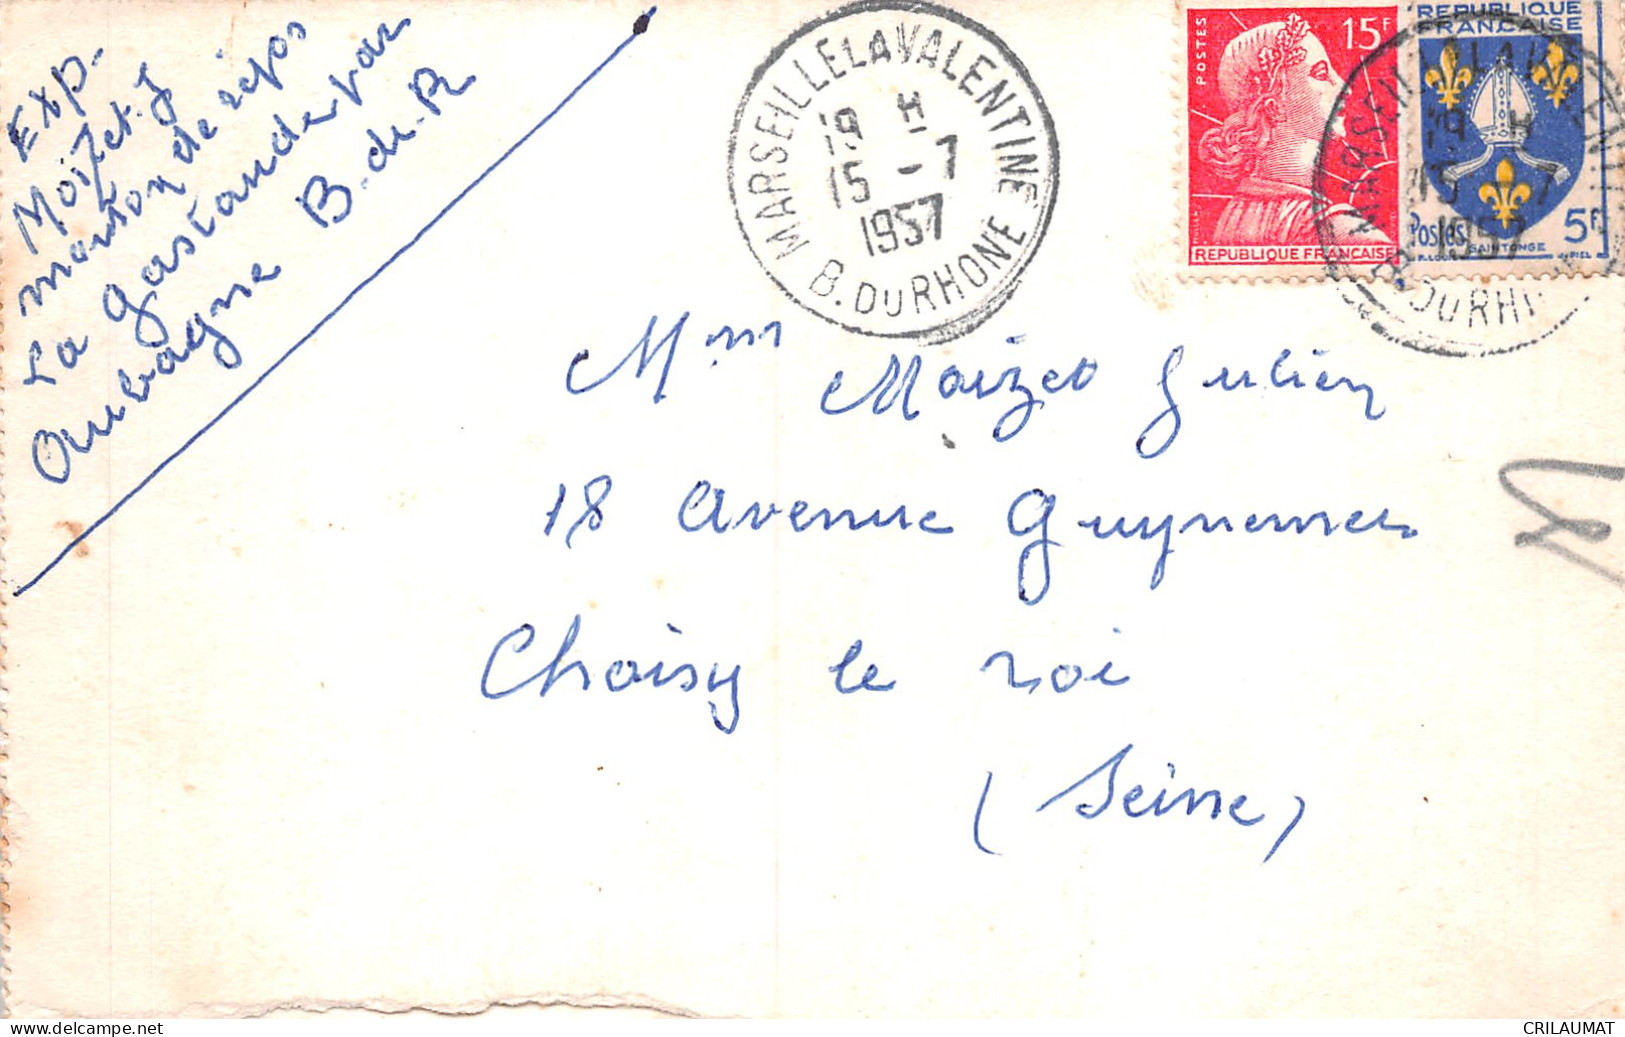 Exp.
Moizet. J
maison de repos
La gastaude par
Aubagne B.-du-R
MARSEILLE LA VALENTINE
19 H
15 - 7
1957
B. DU RHONE
POSTES
15F
REPUBLIQUE FRANÇAISE
REPUBLIQUE
FRANÇAISE
Postes
SAINTONGE
5F
PIEL
MARSEILLE LA VALENTINE
19 H
15 - 7
1957
B. DU RHONE
Mme Moizet Julien
18 Avenue Guynemer
Choisy le roi
(Seine)
CRILAUMAT